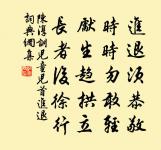 進退須恭敬
時時勿敢輕
獻生趨拱立
長者後徐行
陳淳訓兒童八首進退
詞典網集